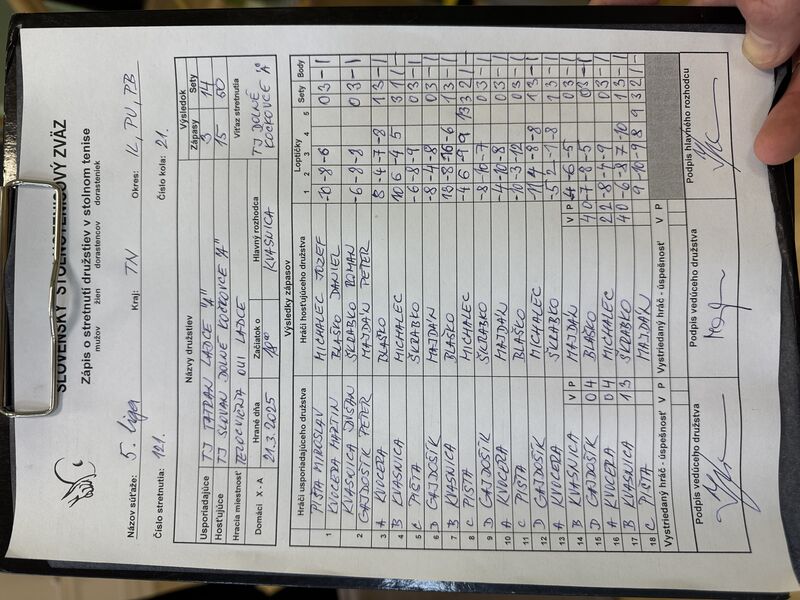 SLOVENSKÝ STOLNOTENISOVÝ ZVÄZ
Zápis o stretnutí družstiev v stolnom tenise
mužov žien dorastencov dorasteniek
Názov súťaže: 5. liga Kraj: TN Okres: IL, PU, PB
Číslo stretnutia: 121. Číslo kola: 21.
Názvy družstiev Výsledok
Zápasy Sety
Usporiadajúce TJ TATRAN LADCE "A" 3 14
Hosťujúce TJ SLOVAN DOLNÉ KOČKOVCE "A" 15 50
Hracia miestnosť TELOCVIČŇA OUI LADCE Víťaz stretnutia
Domáci X - A Hrané dňa Začiatok o Hlavný rozhodca TJ DOLNÉ
21.3.2025 1800 KVASNICA KOČKOVCE "A"
Výsledky zápasov
Hráči usporiadajúceho družstva Hráči hosťujúceho družstva Loptičky Sety Body
1 2 3 4 5
PIŠTA MIROSLAV MICHALEC JOZEF -10 -8 -6 0 3 - 1
1 KVOCERA MARTIN BLAŠKO DANIEL
KVASNICA DUŠAN ŠKRABKO ROMAN -6 -8 -8 0 3 - 1
2 GAJDOŠÍK PETER MAJDÁN PETER
3 A KVOCERA BLAŠKO 8 -4 -7 -8 1 3 - 1
4 B KVASNICA MICHALEC 10 6 -4 5 3 1 1 -
5 C PIŠTA ŠKRABKO -6 -8 -9 0 3 - 1
6 D GAJDOŠÍK MAJDÁN -8 -4 -8 0 3 - 1
7 B KVASNICA BLAŠKO 13 -8 -6 1 3 - 1
8 C PIŠTA MICHALEC -4 6 -9 9 13 3 2 1 -
9 D GAJDOŠÍK ŠKRABKO -8 -10 -7 0 3 - 1
10 A KVOCERA MAJDÁN -4 -10 -8 0 3 - 1
11 C PIŠTA BLAŠKO -10 -3 -12 0 3 - 1
12 D GAJDOŠÍK MICHALEC -11 4 -8 -8 1 3 - 1
13 A KVOCERA ŠKRABKO -5 2 -1 -8 1 3 - 1
V P V P
14 B KVASNICA MAJDÁN -6 -5 0 3 - 1
15 D GAJDOŠÍK 0 4 BLAŠKO 4 0 -7 -8 -5 0 3 - 1
16 A KVOCERA 0 4 MICHALEC 2 2 -8 -4 -9 0 3 - 1
17 B KVASNICA 1 3 ŠKRABKO 4 0 -6 -8 7 -10 1 3 - 1
18 C PIŠTA MAJDÁN 9 -10 -9 8 9 3 2 1 -
Vystriedaný hráč - úspešnosť V P Vystriedaný hráč - úspešnosť V P
Podpis vedúceho družstva Podpis vedúceho družstva Podpis hlavného rozhodcu